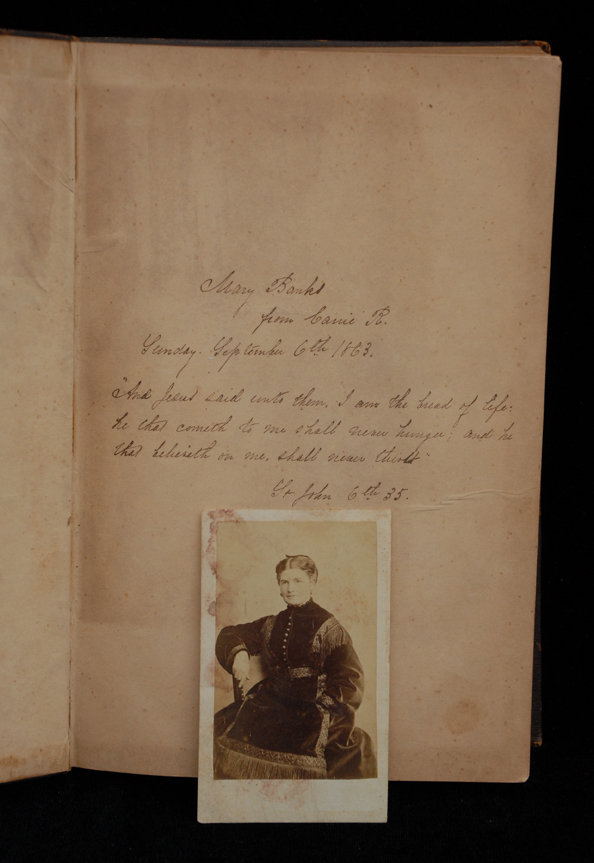 Mary Banks
from Carrie R.
Sunday. September 6th 1863.
"And Jesus said unto them, I am the bread of life:
he that cometh to me shall never hunger; and he
that believeth on me, shall never thirst"
St John 6th 35.